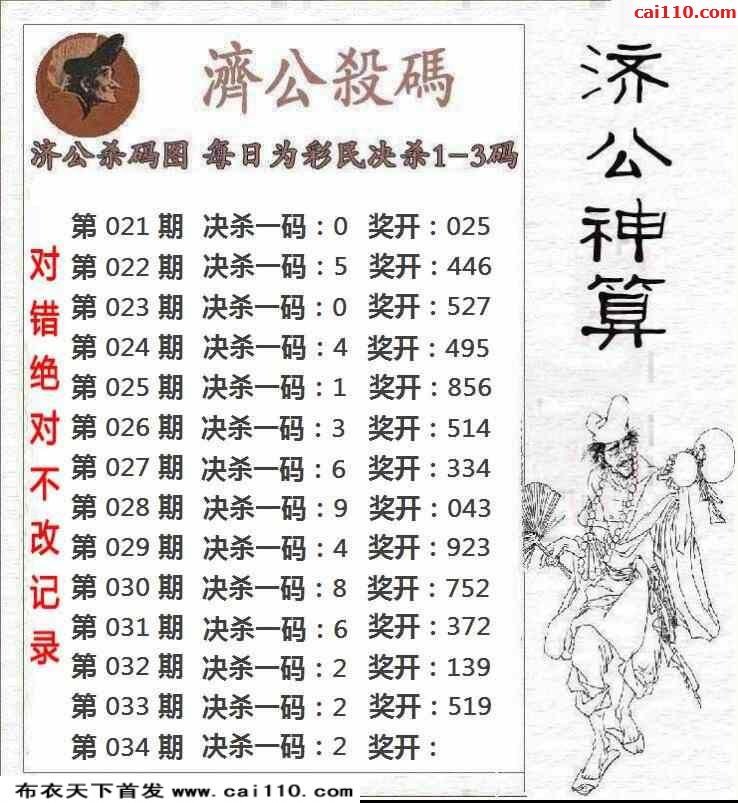 cai110.com
濟公殺碼
济公杀码图 每日为彩民决杀1-3码
第 021 期 决杀一码：0 奖开：025
第 022 期 决杀一码：5 奖开：446
第 023 期 决杀一码：0 奖开：527
第 024 期 决杀一码：4 奖开：495
第 025 期 决杀一码：1 奖开：856
第 026 期 决杀一码：3 奖开：514
第 027 期 决杀一码：6 奖开：334
第 028 期 决杀一码：9 奖开：043
第 029 期 决杀一码：4 奖开：923
第 030 期 决杀一码：8 奖开：752
第 031 期 决杀一码：6 奖开：372
第 032 期 决杀一码：2 奖开：139
第 033 期 决杀一码：2 奖开：519
第 034 期 决杀一码：2 奖开：
对错绝对不改记录
济公神算
布衣天下首发 www.cai110.com